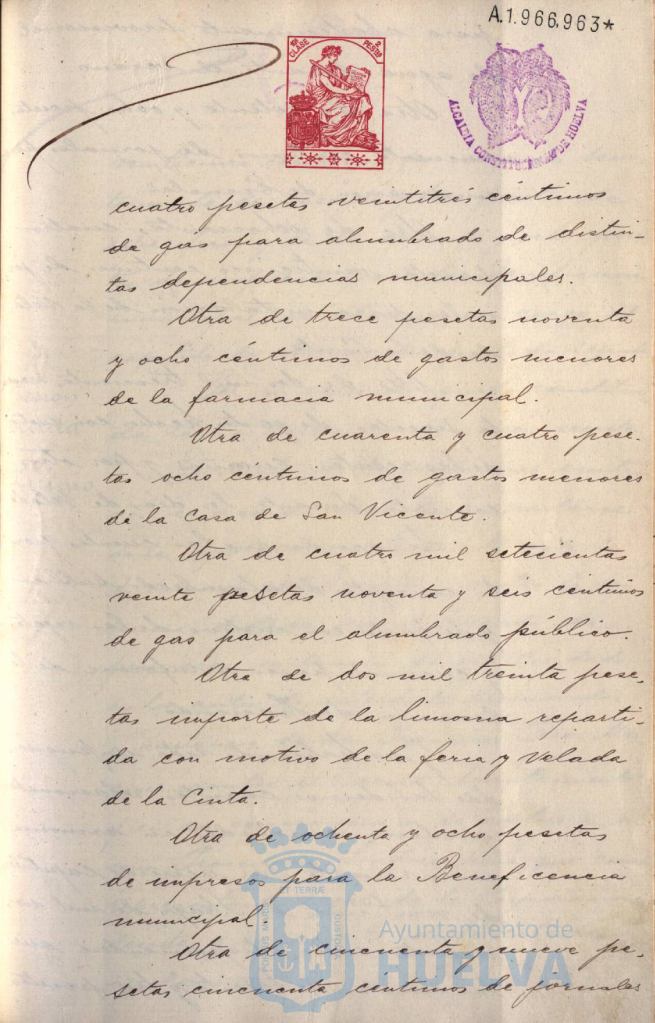 A.1.966,963*
10ª CLASE 2 PESTAS
ALCALDIA CONSTITUCIONAL DE HUELVA
cuatro pesetas veintitrés céntimos
de gas para alumbrado de distin-
tas dependencias municipales.
Otra de trece pesetas noventa
y ocho céntimos de gastos menores
de la farmacia municipal.
Otra de cuarenta y cuatro pese-
tas ocho céntimos de gastos menores
de la Casa de San Vicente.
Otra de cuatro mil setecientas
veinte pesetas noventa y seis centimos
de gas para el alumbrado público.
Otra de dos mil treinta pese-
tas importe de la limosna reparti-
da con motivo de la feria y Velada
de la Cinta.
Otra de ochenta y ocho pesetas
de impresos para la Beneficencia
municipal
Otra de cincuenta y nueve pe-
setas cincuenta centimos de jornales
Ayuntamiento de
HUELVA